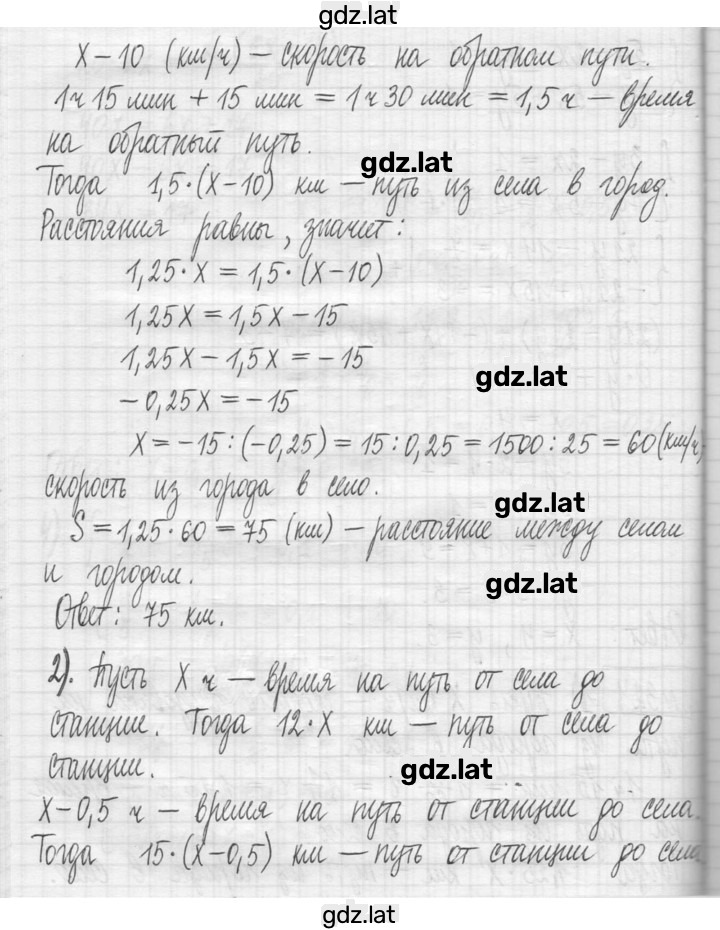 gdz.lat
x-10 (км/ч) – скорость на обратном пути.
1ч 15 мин + 15 мин = 1ч 30 мин = 1,5 ч – время
на обратный путь.
gdz.lat
Тогда 1,5·(x-10) км – путь из села в город.
Расстояния равны, значит:
1,25·x = 1,5·(x-10)
1,25x = 1,5x - 15
1,25x - 1,5x = -15
gdz.lat
-0,25x = -15
x = -15:(-0,25) = 15:0,25 = 1500:25 = 60 (км/ч)
скорость из города в село.
gdz.lat
S = 1,25·60 = 75 (км) – расстояние между селом
и городом.
gdz.lat
Ответ: 75 км.
2). Пусть x ч – время на путь от села до
станции. Тогда 12·x км – путь от села до
станции.
gdz.lat
x-0,5 ч – время на путь от станции до села.
Тогда 15·(x-0,5) км – путь от станции до села
gdz.lat